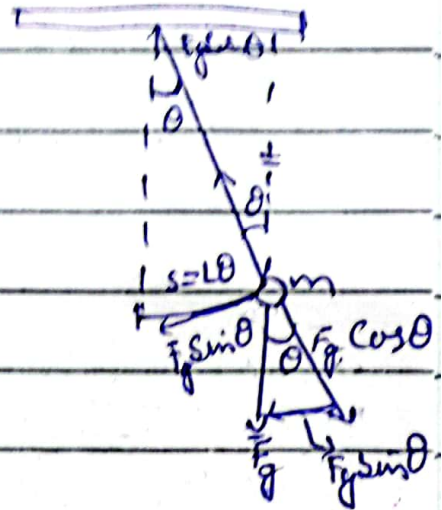 θ
θ
s=Lθ
m
F_g Sinθ
θ
F_g Cosθ
F_g
F_g Sinθ